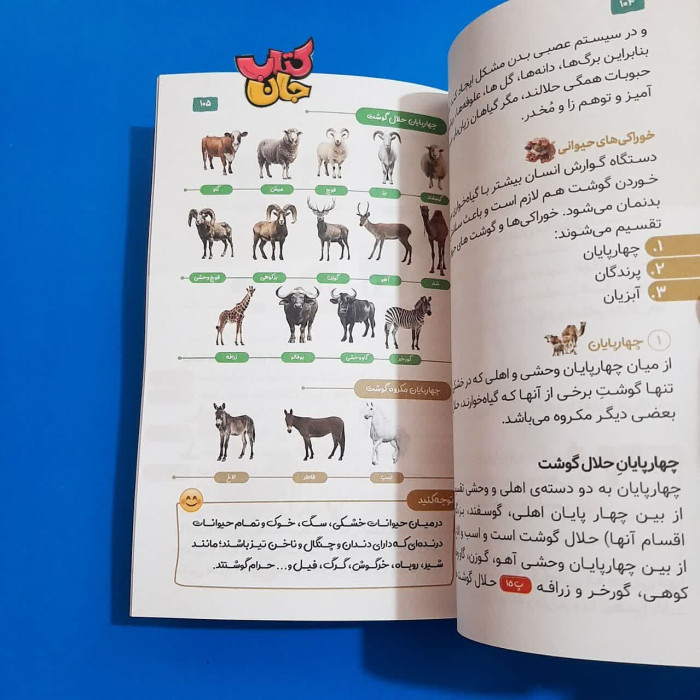 ۱۰۴
و در سیستم عصبی بدن مشکل ایجاد
بنابراین برگ‌ها، دانه‌ها، گل ها، علوفه‌ها،
حبوبات همگی حلالند، مگر گیاهان
آمیز و توهم زا و مُخدر.
خوراکی‌های حیوانی
دستگاه گوارش انسان بیشتر با
خوردن گوشت هم لازم است و باعث
بدنمان می‌شود. خوراکی‌ها و گوشت های
تقسیم می‌شوند:
۱. چهارپایان
۲. پرندگان
۳. آبزیان
۱ چهارپایان
از میان چهارپایان وحشی و اهلی که در
تنها گوشتِ برخی از آنها که گیاه‌خوارند،
بعضی دیگر مکروه می‌باشد.
چهارپایانِ حلال گوشت
چهارپایان به دو دسته‌ی اهلی و وحشی
از بین چهار پایان اهلی، گوسفند،
اقسام آنها) حلال گوشت است و اسب و
از بین چهارپایان وحشی آهو، گوزن،
کوهی، گورخر و زرافه پ ۱۵ حلال
کتاب جان
۱۰۵
چهارپایان حلال گوشت
گوسفند بز قوچ میش گاو
شتر آهو گوزن بزکوهی قوچ وحشی
گورخر گاو وحشی بوفالو زرافه
چهارپایان مکروه گوشت
اسب قاطر الاغ
توجه کنید
در میان حیوانات خشکی، سگ، خوک و تمام حیوانات
درنده‌ای که دارای دندان و چنگال و ناخن تیز باشند؛ مانند
شیر، روباه، خرگوش، گرگ، فیل و... حرام گوشتند.